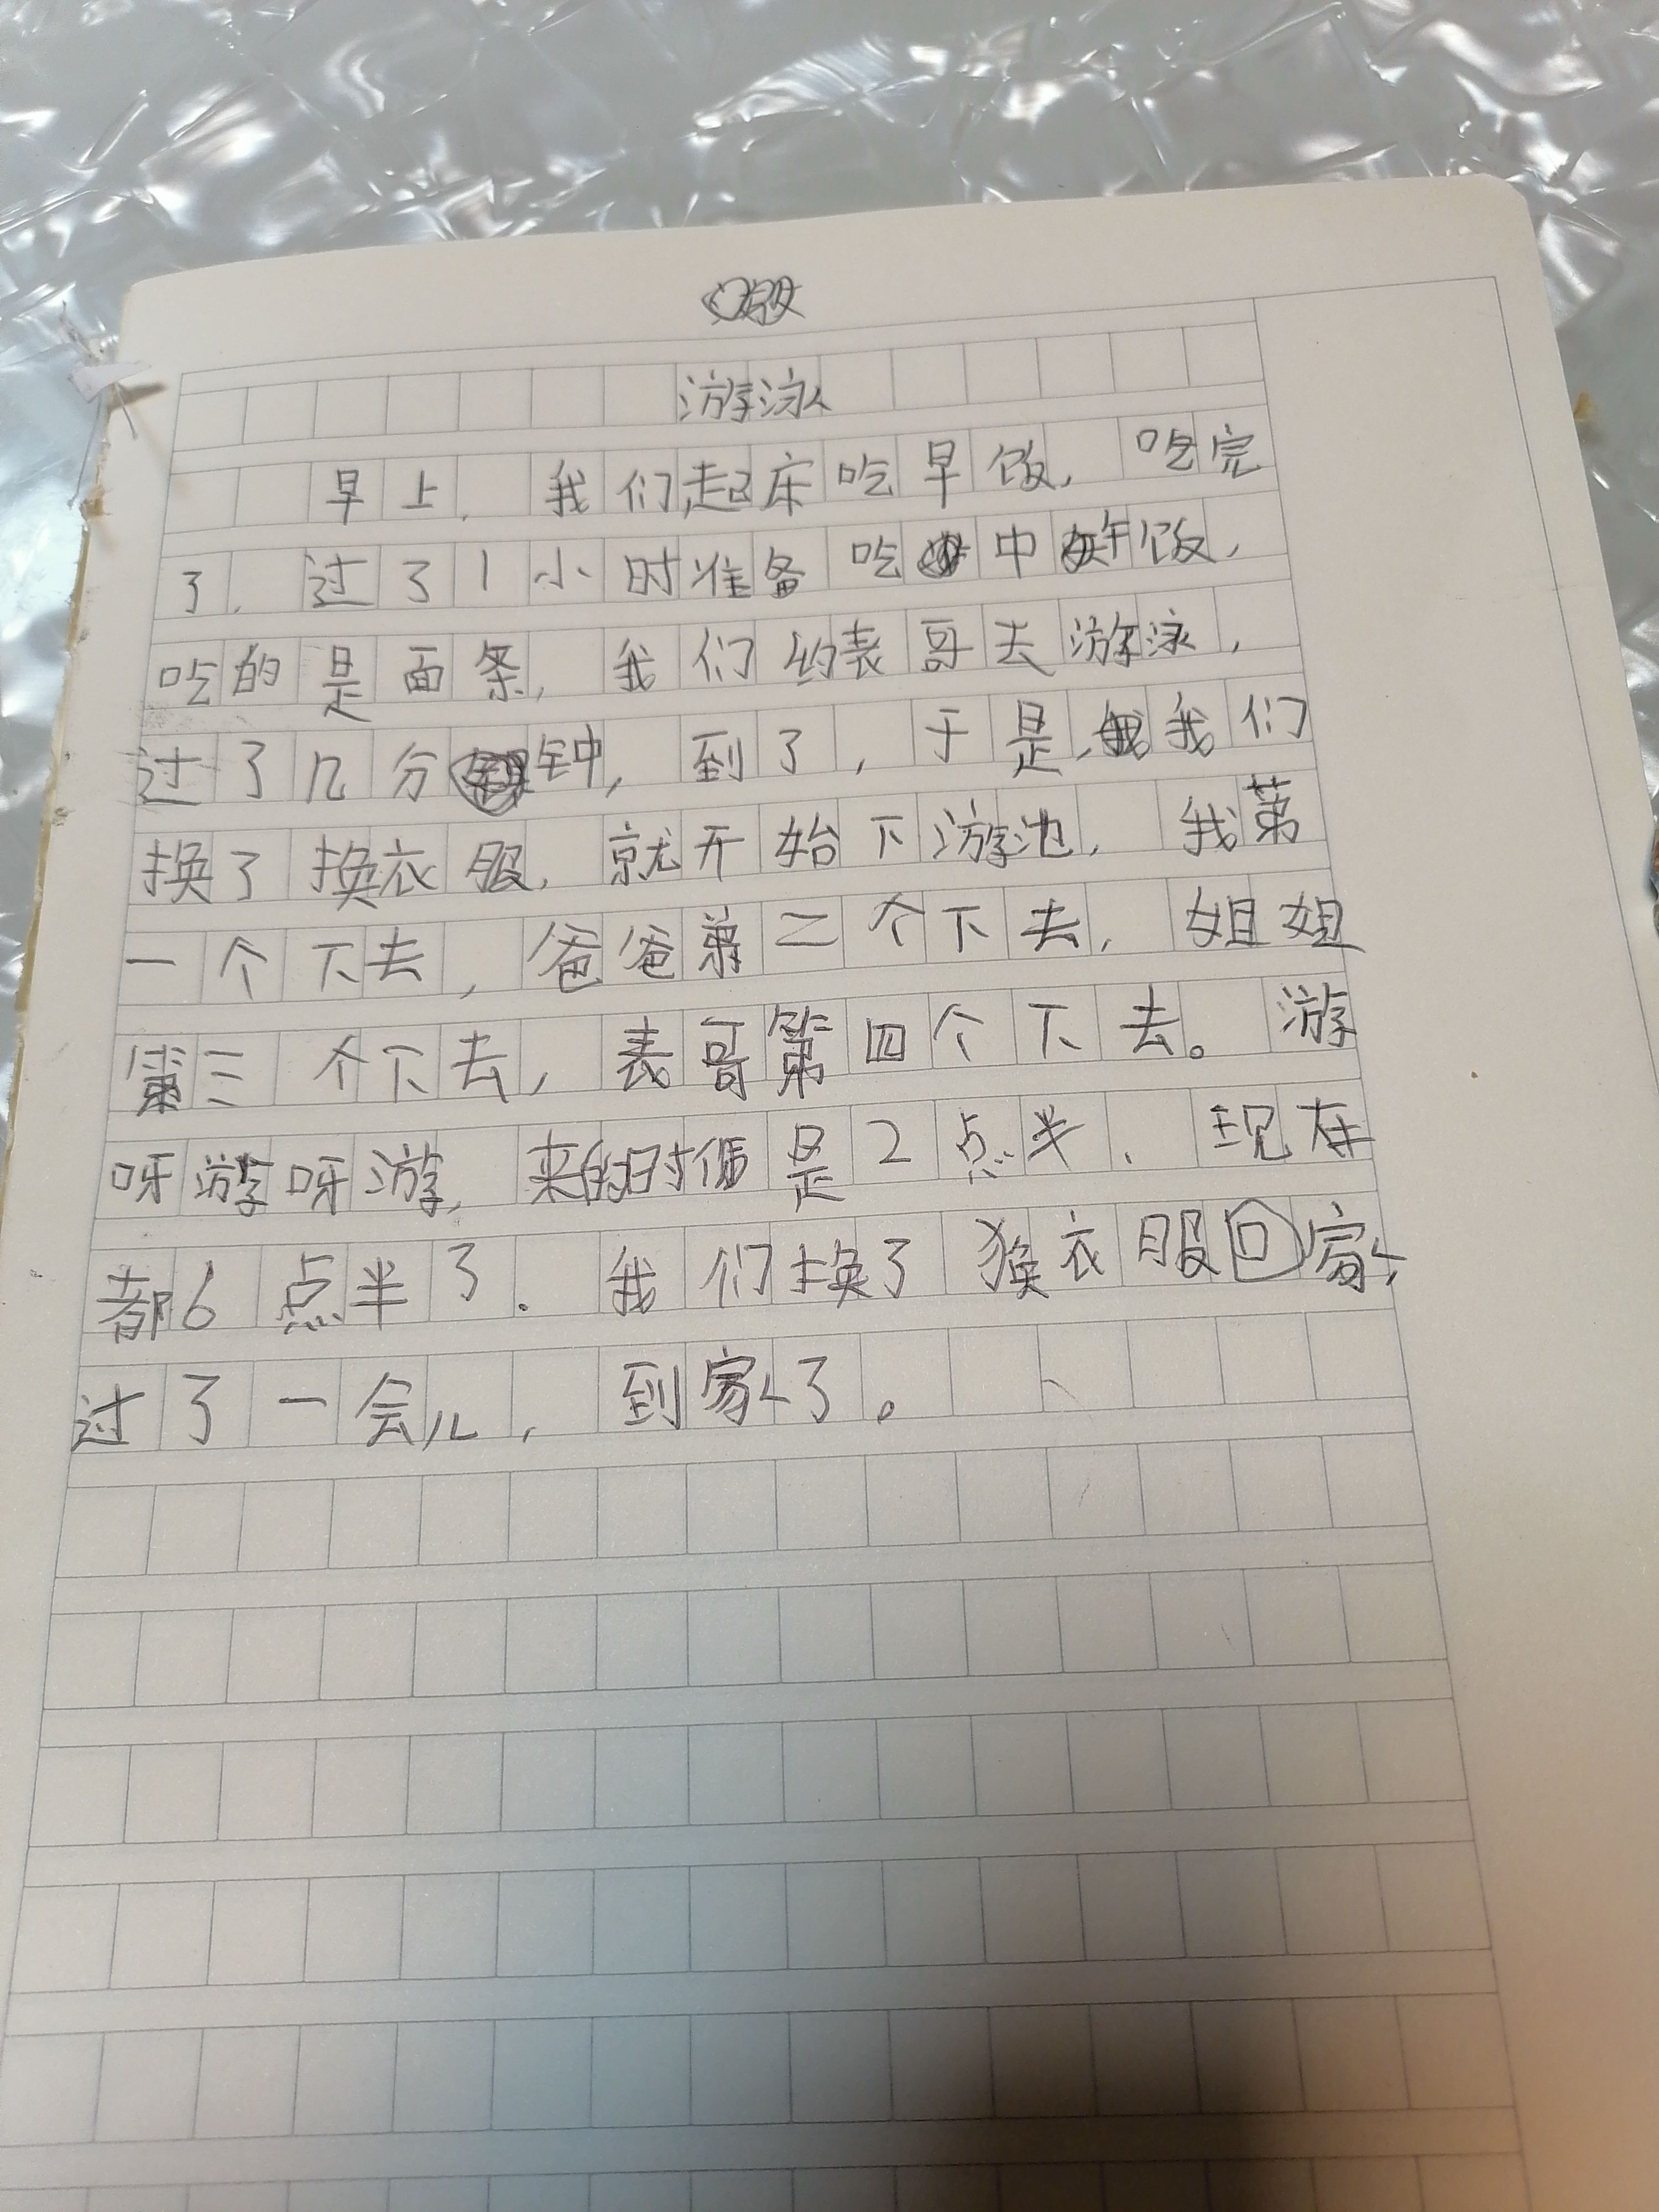 游泳
早上，我们起床吃早饭，吃完
了，过了1小时准备吃中午饭，
吃的是面条，我们约表哥去游泳，
过了几分钟，到了，于是，我们
换了换衣服，就开始下游池，我第
一个下去，爸爸第二个下去，姐姐
第三个下去，表哥第四个下去。游
呀游呀游，来的时候是2点半，现在
都6点半了。我们换了换衣服回家，
过了一会儿，到家了。